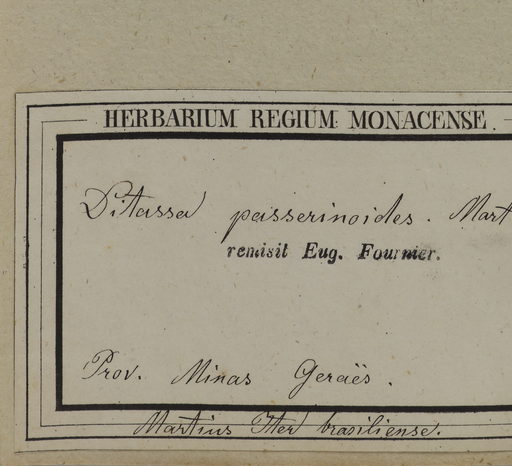 HERBARIUM REGIUM MONACENSE.
Ditassa passerinoides. Mart
remisit Eug. Fournier.
Prov. Minas Geraës.
Martius Iter brasiliense.